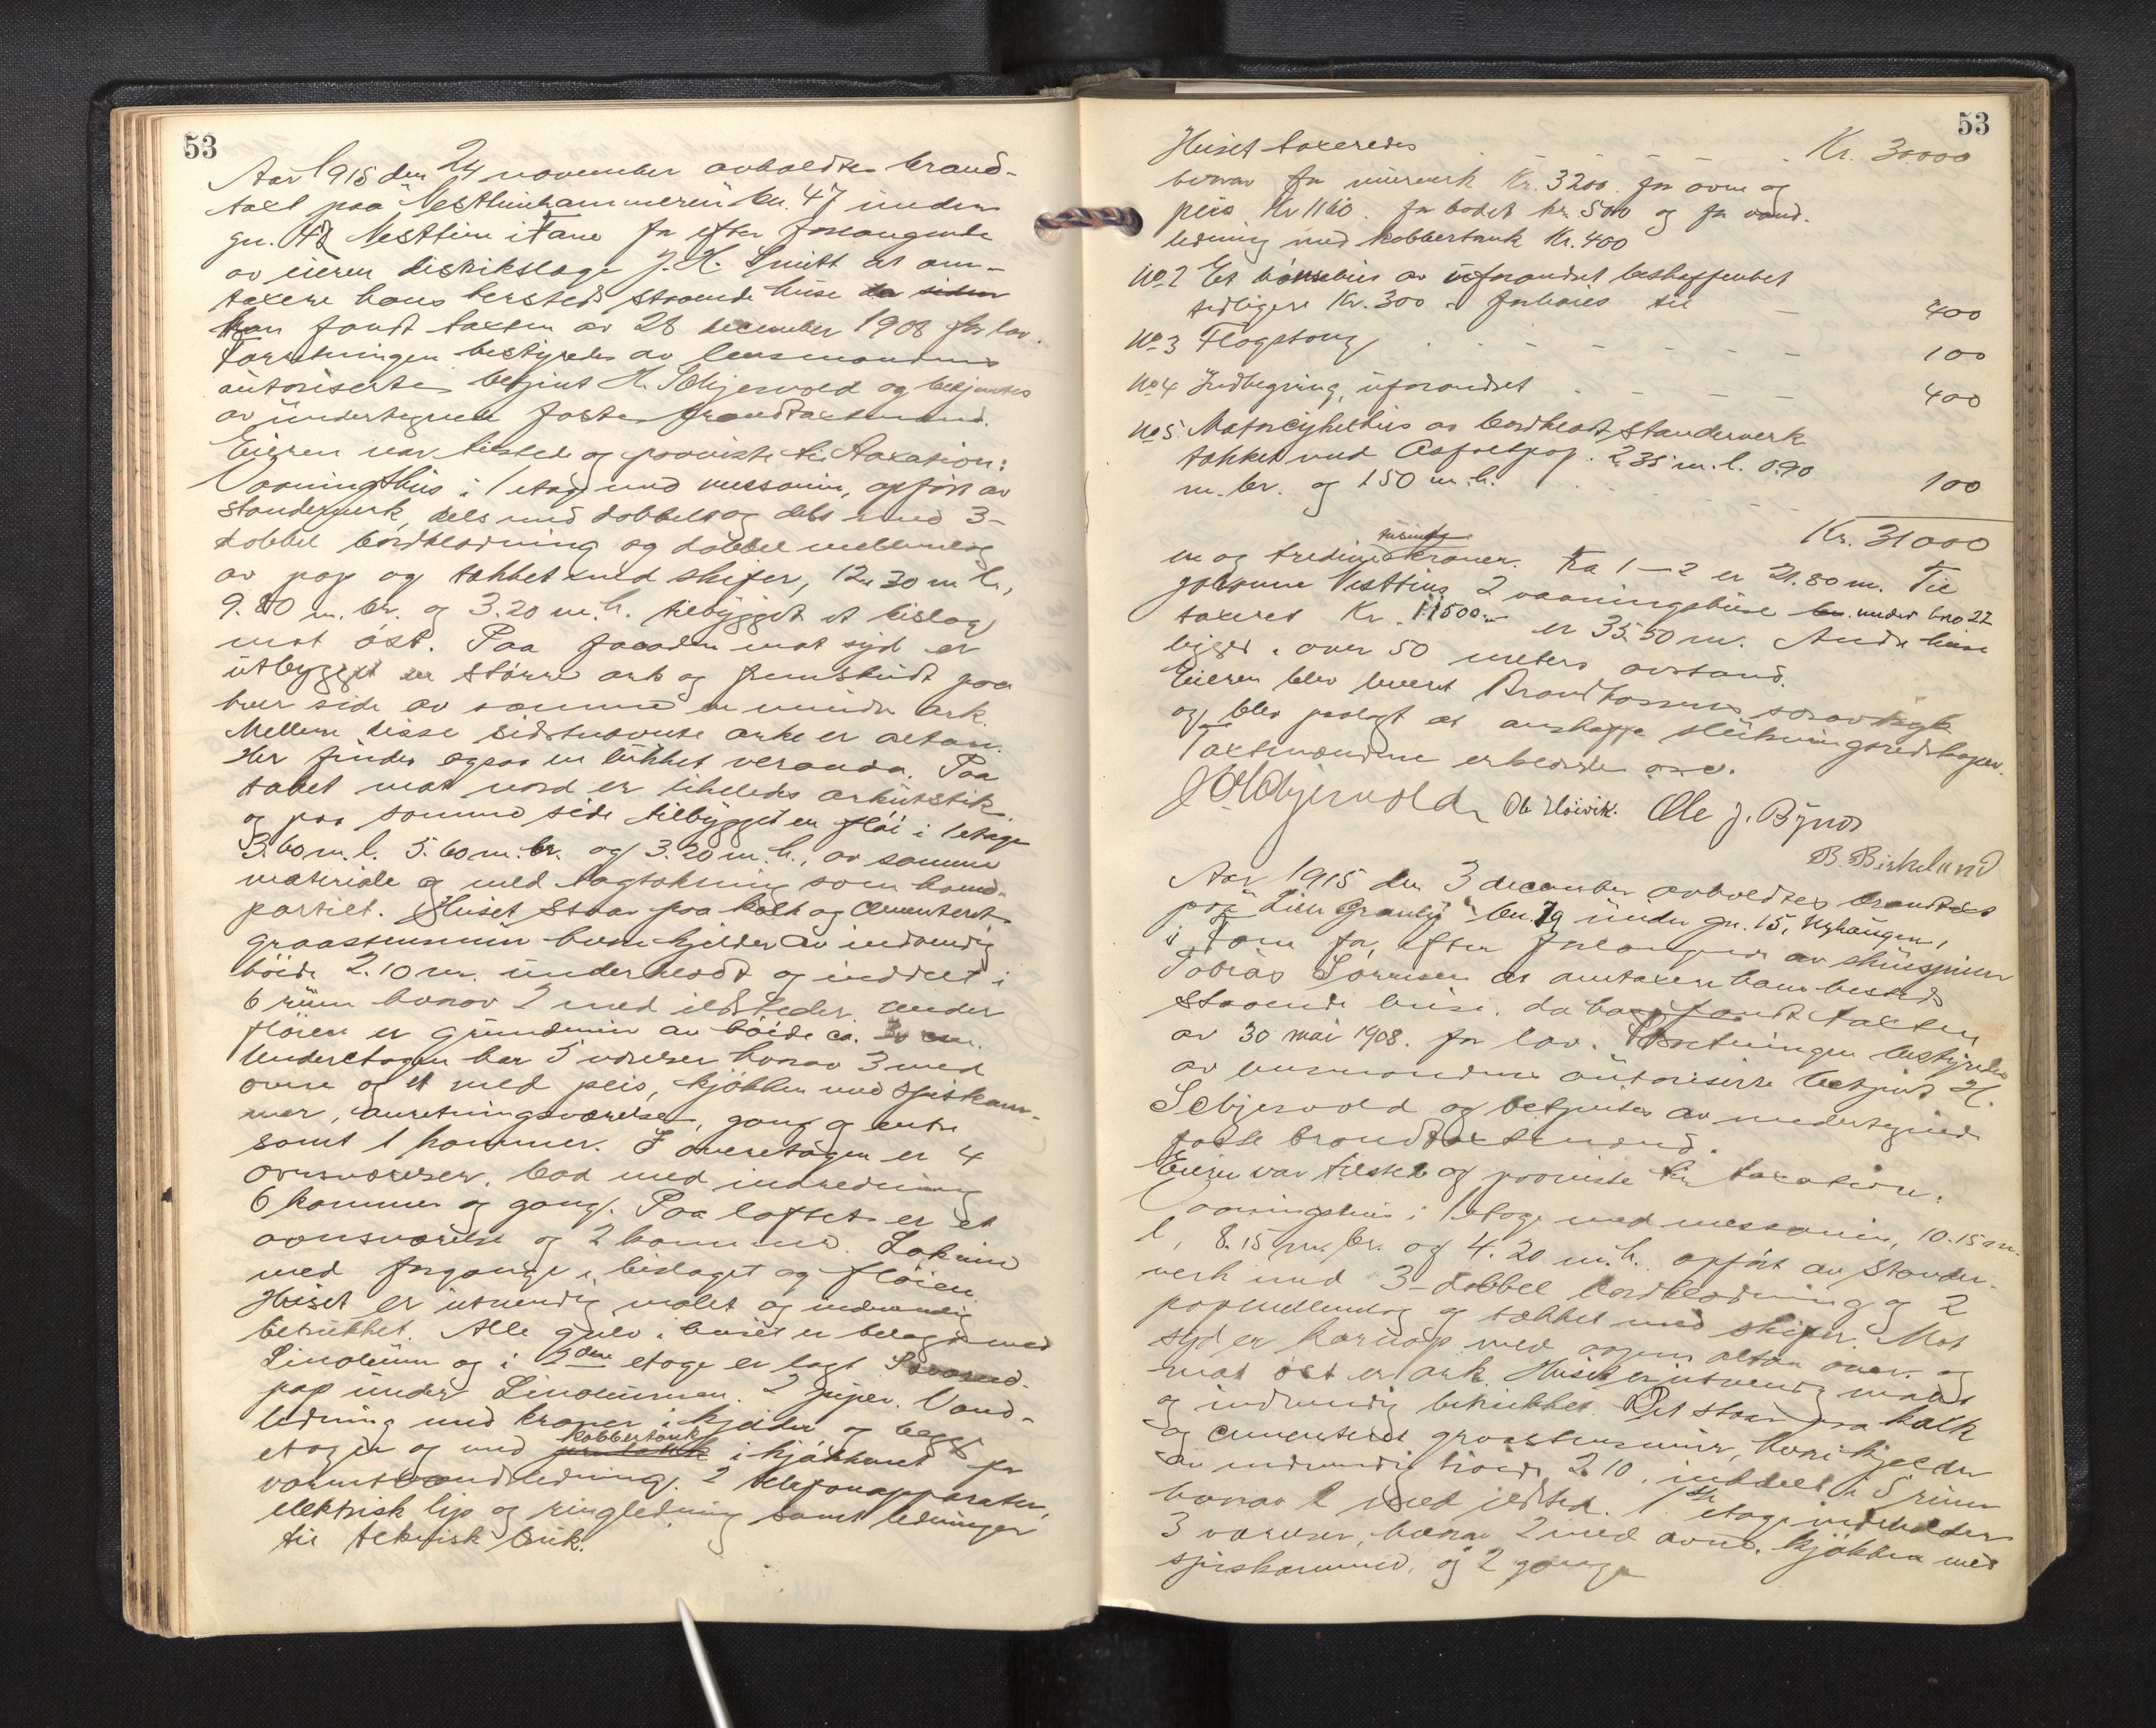 53
Aar 1915 den 24 november avholdtes brand-
taxt paa Nesttunhammeren bn. 47 under
gn. 42 Nesttun i Fane for efter forlangende
av eieren distrikslæge J. K. Smitt at om-
taxere hans bersteds staaende huse da siden
han fandt taxten av 28 december 1908 for lav.
Forretningen bestyredes av lensmandens
autoriserte betjent H. Schjervold og betjentes
av undertegnede faste brandtaxtmænd.
Eieren var tilstede og paaviste til taxation:
Vaaningshus i 1 etage med messanin, opført av
standerverk, dels med dobbelt og dels med 3-
dobbel bordklædning og dobbel mellemlag
av pap og tækket med skifer, 12.30 m l.,
9.80 m. br. og 3.20 m. h. tilbygget et bislag
mot øst. Paa facaden mot syd er
utbygget en større ark og fremskudt paa
hver side av samme en mindre ark.
Mellem disse sidstnævnte arke er altan.
Her findes ogsaa en lukket veranda. Paa
taket mot nord er likeledes arkutstik
og paa samme side tilbygget en fløi i 1 etage
3.60 m. l. 5.60 m. br. og 3.20 m. h., av samme
materiale og med tagtækning som hoved-
partiet. Huset staar paa kalk og cementeret
graastensmur hvori kjelder av indvendig
høide 2.10 m. underhældt og inddelt i
6 rum hvorav 2 med ildsteder. Under
fløien er grundmur av høide ca.
Underetagen har 5 værelser hvorav 3 med
ovne og et med peis, kjøkken med spiskam-
mer, anretningsværelse, gang og entre
samt 1 kammer. I overetagen er 4
ovnsværelser, bad med indredning
6 kammer og gang. Paa loftet er et
ovnsværelse og 2 kammer. Lokum
med forgange i bislaget og fløien.
Huset er utvendig malet og indvendig
betrukket. Alle gulv i huset er belagt med
Linoleum og i 2den etage er lagt
pap under Linoleumen. 2 piper. Vand-
ledning med kraner i kjelder og begge
etager og med kobbertank i kjøkkenet for
varmtvandsledning. 2 telefonapparater,
elektrisk lys og ringledning samt ledninger
til teknisk bruk.
53
Huset taxeredes Kr. 30000
hvorav for murverk Kr. 3200. for ovne og
peis Kr 1160. for badet kr. 500 og for vand-
ledning med kobbertank Kr. 400
No 2 Et hønsehus av uforandret beskaffenhet
tidligere Kr. 300 forhøies til 400
No 3 Flagstang 100
No 4 Indhegning, uforandret 400
No 5 Motorcykelhus av bordklædt standerverk
tækket med Asfaltpap. 2.35 m. l. 0.90
m. br. og 1.50 m. h. 100
Kr. 31000
en og tredive tusinde kroner. Fra 1-2 er 21.80 m. Til
Johanne Nesttuns 2 vaaningshuse under bno 22
taxeret Kr. 11500.- er 35.50 m. Andre huse
ligger over 50 meters avstand.
Eieren blev leveret Brandkassens
og blev paalagt at anskaffe slukningsredskaper.
Taxtmændene erklærte o.s.v.
H Schjervold Ole Høivik. Ole J. Bynes
B. Birkeland
Aar 1915 den 3 december avholdtes brandtaxt
paa Lien Granly bn. 19 under gn. 15, Nyhaugen,
i Fane for efter forlangende av skuespiller
Tobias Sørensen at omtaxere hans bersteds
staaende huse, da han fandt taxten
av 30 mai 1908. for lav. Forretningen bestyredes
av lensmandens autoriserte betjent H.
Schjervold og betjentes av undertegnede
faste brandtaxtmænd.
Eieren var tilstede og paaviste til taxation.
Vaaningshus i 1 etage med messanin, 10.15 m.
l, 8.15 m. br. og 4.20 m. h. opført av stander-
verk med 3-dobbel bordklædning og 2
papmellemlag og tækket med skifer. Mot
syd er karnap med aapen altan over og
mot øst er ark. Huset er utvendig malet
og indvendig betrukket. Det staar paa kalk
og cementeret graastensmur, hvori kjelder
av indvendig høide 2.10, inddelt i 5 rum
hvorav 1 med ildsted. 1ste etage indeholder
3 værelser, hvorav 2 med ovne, kjøkken med
spiskammer, og 2 gange